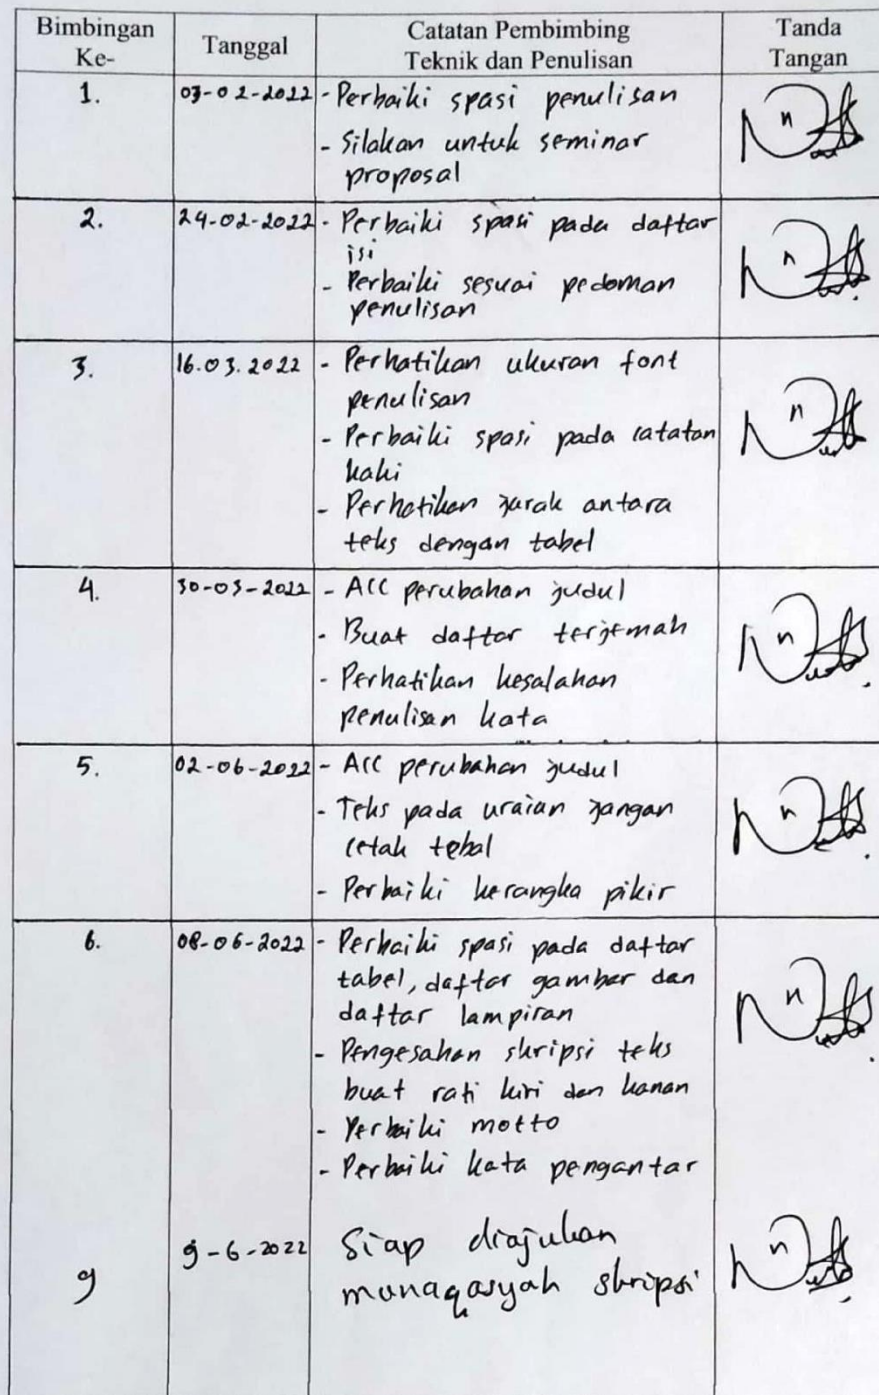 Bimbingan Ke- Tanggal Catatan Pembimbing Teknik dan Penulisan Tanda Tangan
1. 07-02-2022 - Perbaiki spasi penulisan
- Silakan untuk seminar
proposal
2. 24-02-2022 - Perbaiki spasi pada daftar
isi
- Perbaiki sesuai pedoman
penulisan
3. 16.03.2022 - Perhatikan ukuran font
penulisan
- Perbaiki spasi pada catatan
kaki
- Perhatikan jarak antara
teks dengan tabel
4. 30-03-2022 - ACC perubahan judul
- Buat daftar terjemah
- Perhatikan kesalahan
penulisan kata
5. 02-06-2022 - ACC perubahan judul
- Teks pada uraian jangan
cetak tebal
- Perbaiki kerangka pikir
6. 08-06-2022 - Perbaiki spasi pada daftar
tabel, daftar gambar dan
daftar lampiran
- Pengesahan skripsi teks
buat rati kiri dan kanan
- Perbaiki motto
- Perbaiki kata pengantar
9 9-6-2022 Siap diajukan
munaqasyah skripsi